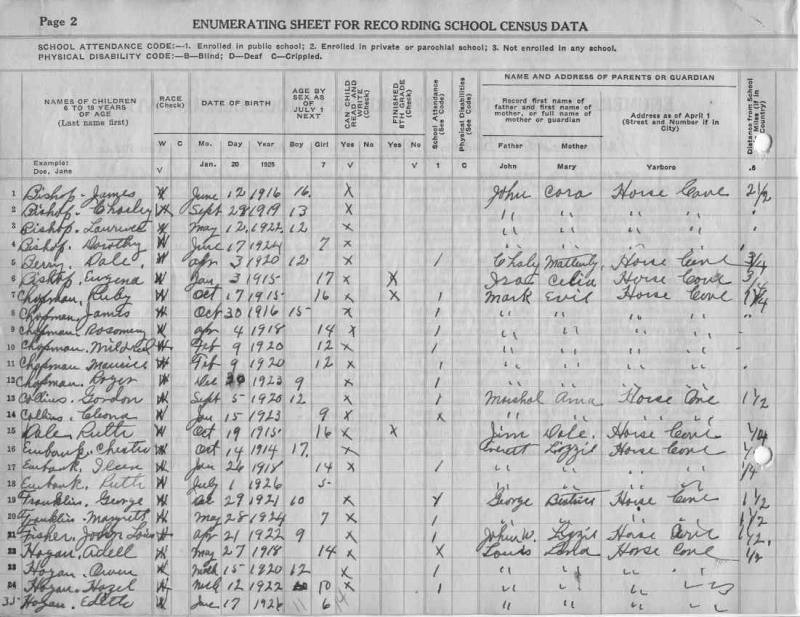 Page 2
ENUMERATING SHEET FOR RECORDING SCHOOL CENSUS DATA
SCHOOL ATTENDANCE CODE:—1. Enrolled in public school; 2. Enrolled in private or parochial school; 3. Not enrolled in any school.
PHYSICAL DISABILITY CODE:—B—Blind; D—Deaf C—Crippled.
NAMES OF CHILDREN 6 TO 18 YEARS OF AGE (Last name first) RACE (Check) DATE OF BIRTH AGE BY SEX AS OF JULY 1 NEXT CAN CHILD READ AND WRITE (Check) FINISHED 8TH GRADE (Check) School Attendance (See Code) Physical Disabilities (See Code) NAME AND ADDRESS OF PARENTS OR GUARDIAN Distance from School Miles (if in Country)
Record first name of father and first name of mother, or full name of mother or guardian Address as of April 1 (Street and Number if in City)
W C Mo. Day Year Boy Girl Yes No Yes No Father Mother
Example: Doe, Jane V Jan. 20 1925 7 V V 1 C John Mary Yarboro .6
1 Bishop James W June 12 1916 16 X John Cora Horse Cave 2 1/2
2 Bishop Charley W Sept 28 1919 13 X " " " "
3 Bishop W May 12 1922 12 X " " " "
4 Bishop Dorothy W June 17 1924 7 X " " " "
5 Berry Dale W Apr 3 1920 12 X 1 Horse Cave 3/4
6 Bishop, Eugena W Jan 3 1915 17 X X Celia Horse Cave 3/4
7 Chapman, Ruby W Oct 17 1915 16 X X 1 Mark Horse Cave
8 Chapman, James W Oct 30 1916 15 X 1 " " " "
9 Chapman Rosemary W Apr 4 1918 14 X 1 " " " "
10 Chapman, Mildred W Feb 9 1920 12 X 1 " " " "
11 Chapman Maurice W Feb 9 1920 12 X 1 " " " "
12 Chapman, Roger W Dec 30 1923 9 X 1 " " " "
13 Collins, Gordon W Sept 5 1920 12 X 1 Anna Horse Cave 1 1/2
14 Collins, Cleona W Jan 15 1923 9 X X " " " "
15 Dale Ruth W Oct 19 1915 16 X X Jim Dale Horse Cave 1/4
16 Eubank, Chester W Oct 14 1914 17 X Everett Lizzie Horse Cave
17 Eubank, W Jan 26 1918 14 X 1 " " " " 1/4
18 Eubank, Ruth W July 1 1926 5 " " " "
19 Franklin, George W Dec 29 1921 10 X George Horse Cave 1 1/2
20 Franklin W May 28 1924 7 X 1 " " " " 1 1/2
21 Fisher, W Apr 21 1922 9 X 1 John W. Lizzie Horse Cave 1 1/2
22 Hogan, Adell W May 27 1918 14 X X Louis Horse Cave 1/2
23 Hogan, Owen W Mch 15 1920 12 X 1 " " " "
24 Hogan, Hazel W Mch 12 1922 10 X 1 " " " "
Hogan, Edith W June 17 1926 6 " " " "